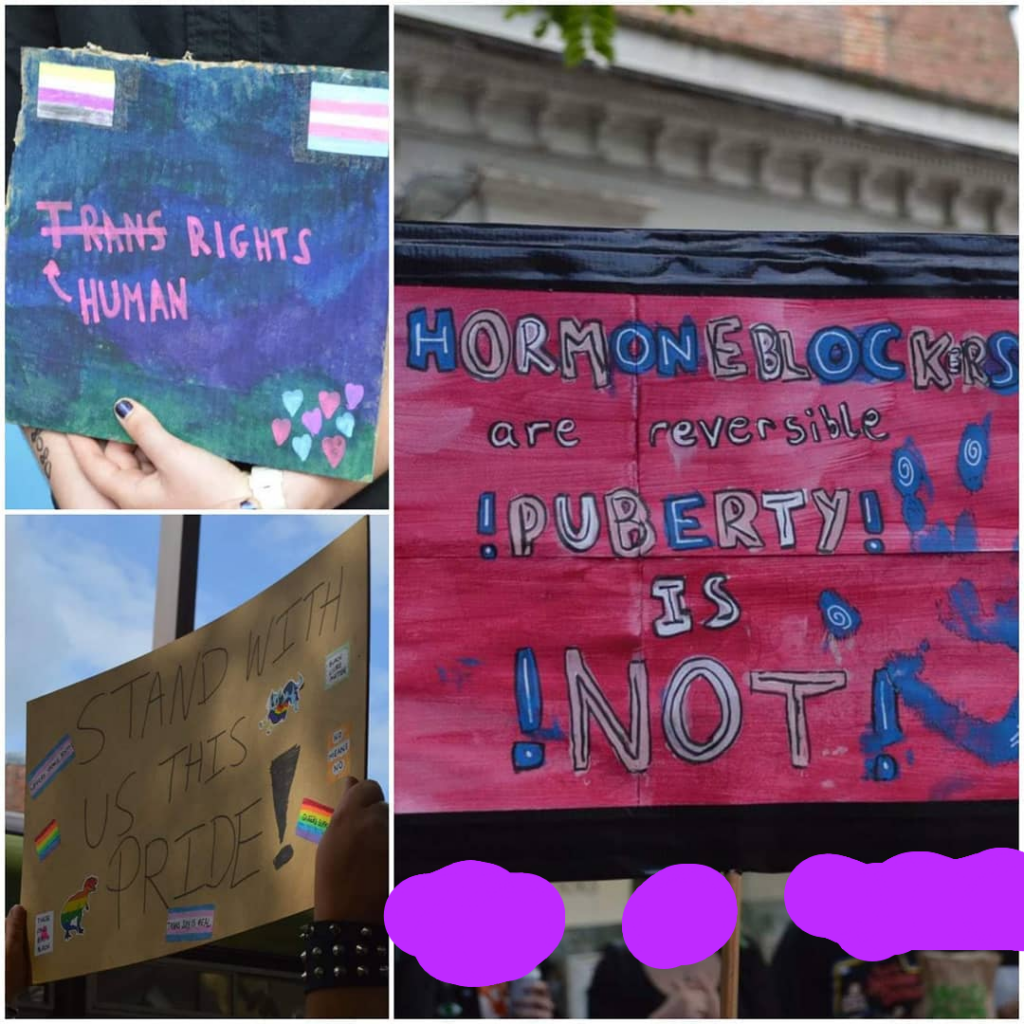 TRANS RIGHTS
HUMAN
STAND WITH
US THIS
PRIDE!
NO
MEANS
NO
HORMONE BLOCKERS
are reversible
!PUBERTY!
IS
!NOT!